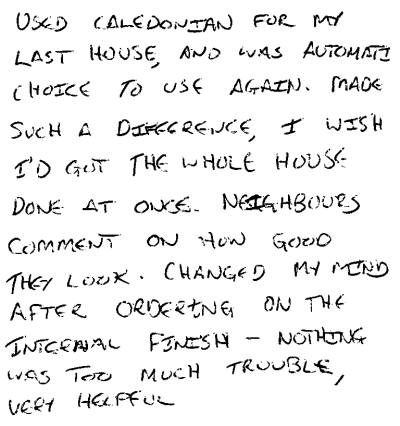 USED CALEDONIAN FOR MY
LAST HOUSE, AND WAS AUTOMATI
CHOICE TO USE AGAIN. MADE
SUCH A DIFFERENCE, I WISH
I'D GOT THE WHOLE HOUSE
DONE AT ONCE. NEIGHBOURS
COMMENT ON HOW GOOD
THEY LOOK. CHANGED MY MIND
AFTER ORDERING ON THE
INTERNAL FINISH - NOTHING
WAS TOO MUCH TROUBLE,
VERY HELPFUL